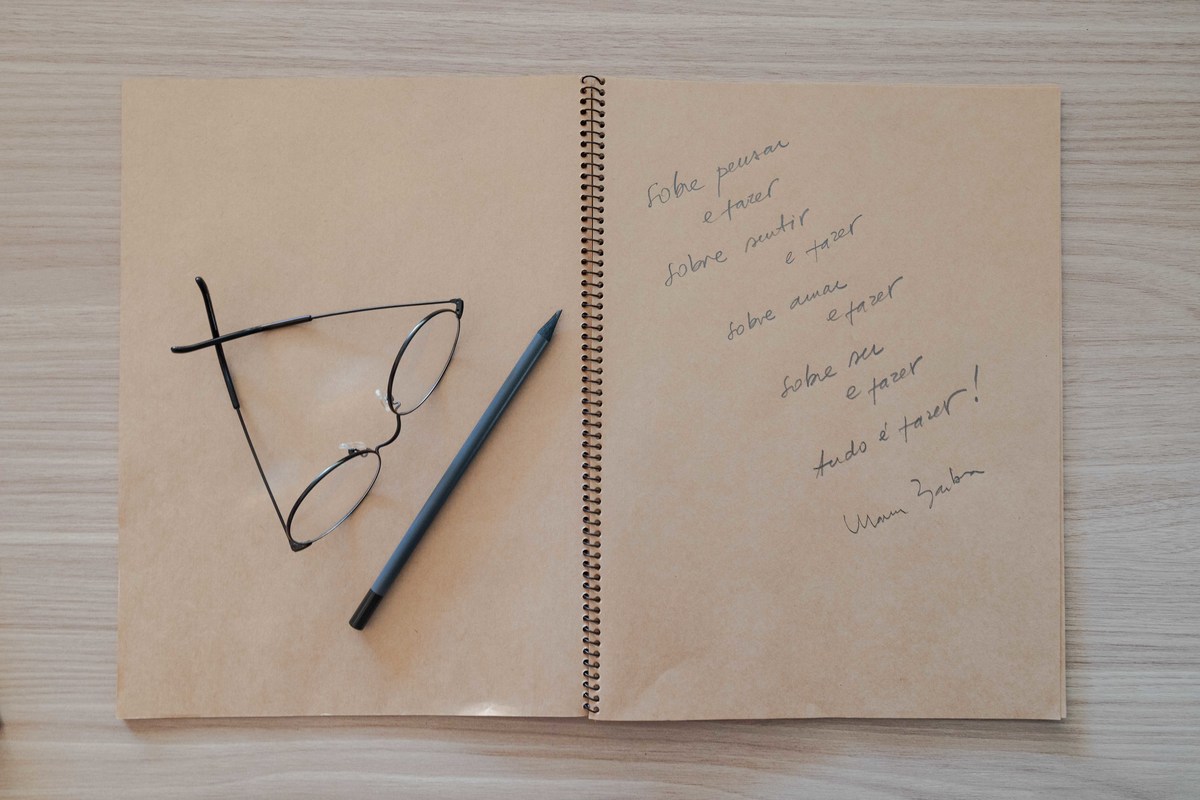 sobre pensar
e fazer
sobre sentir
e fazer
sobre amar
e fazer
sobre ser
e fazer
tudo é fazer!